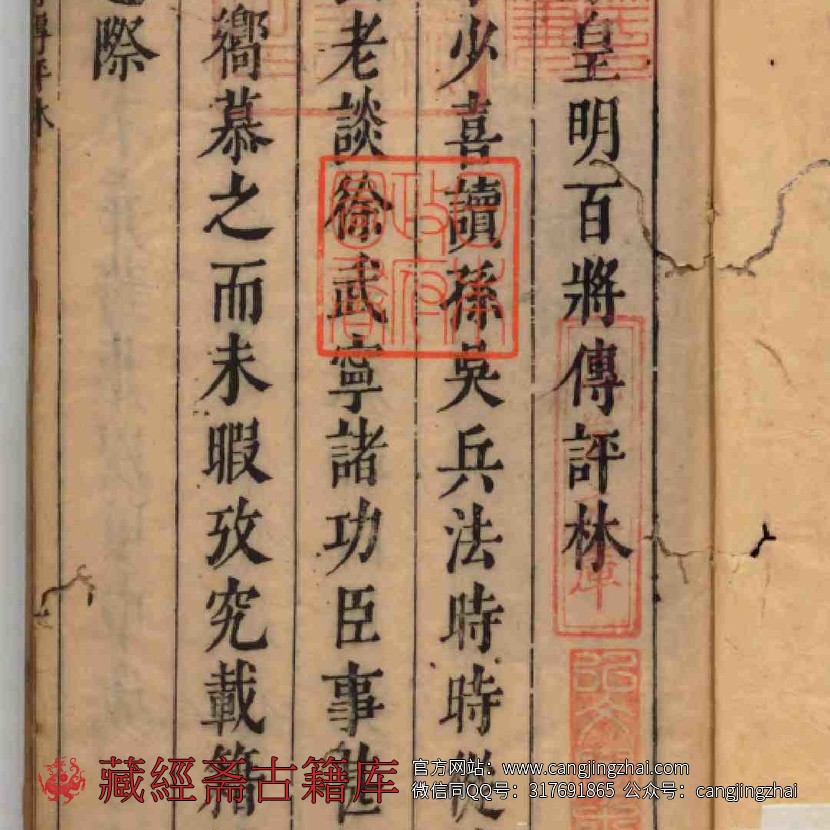 皇明百將傳評林
少喜讀孫吳兵法時時從
老談徐武寧諸功臣事
嚮慕之而未暇攷究載籍
際
傳評林
政府
圖書
庫
藏經斋古籍库
官方网站：www.cangjingzhai.com
微信同QQ号：317691865 公众号：cangjingzhai